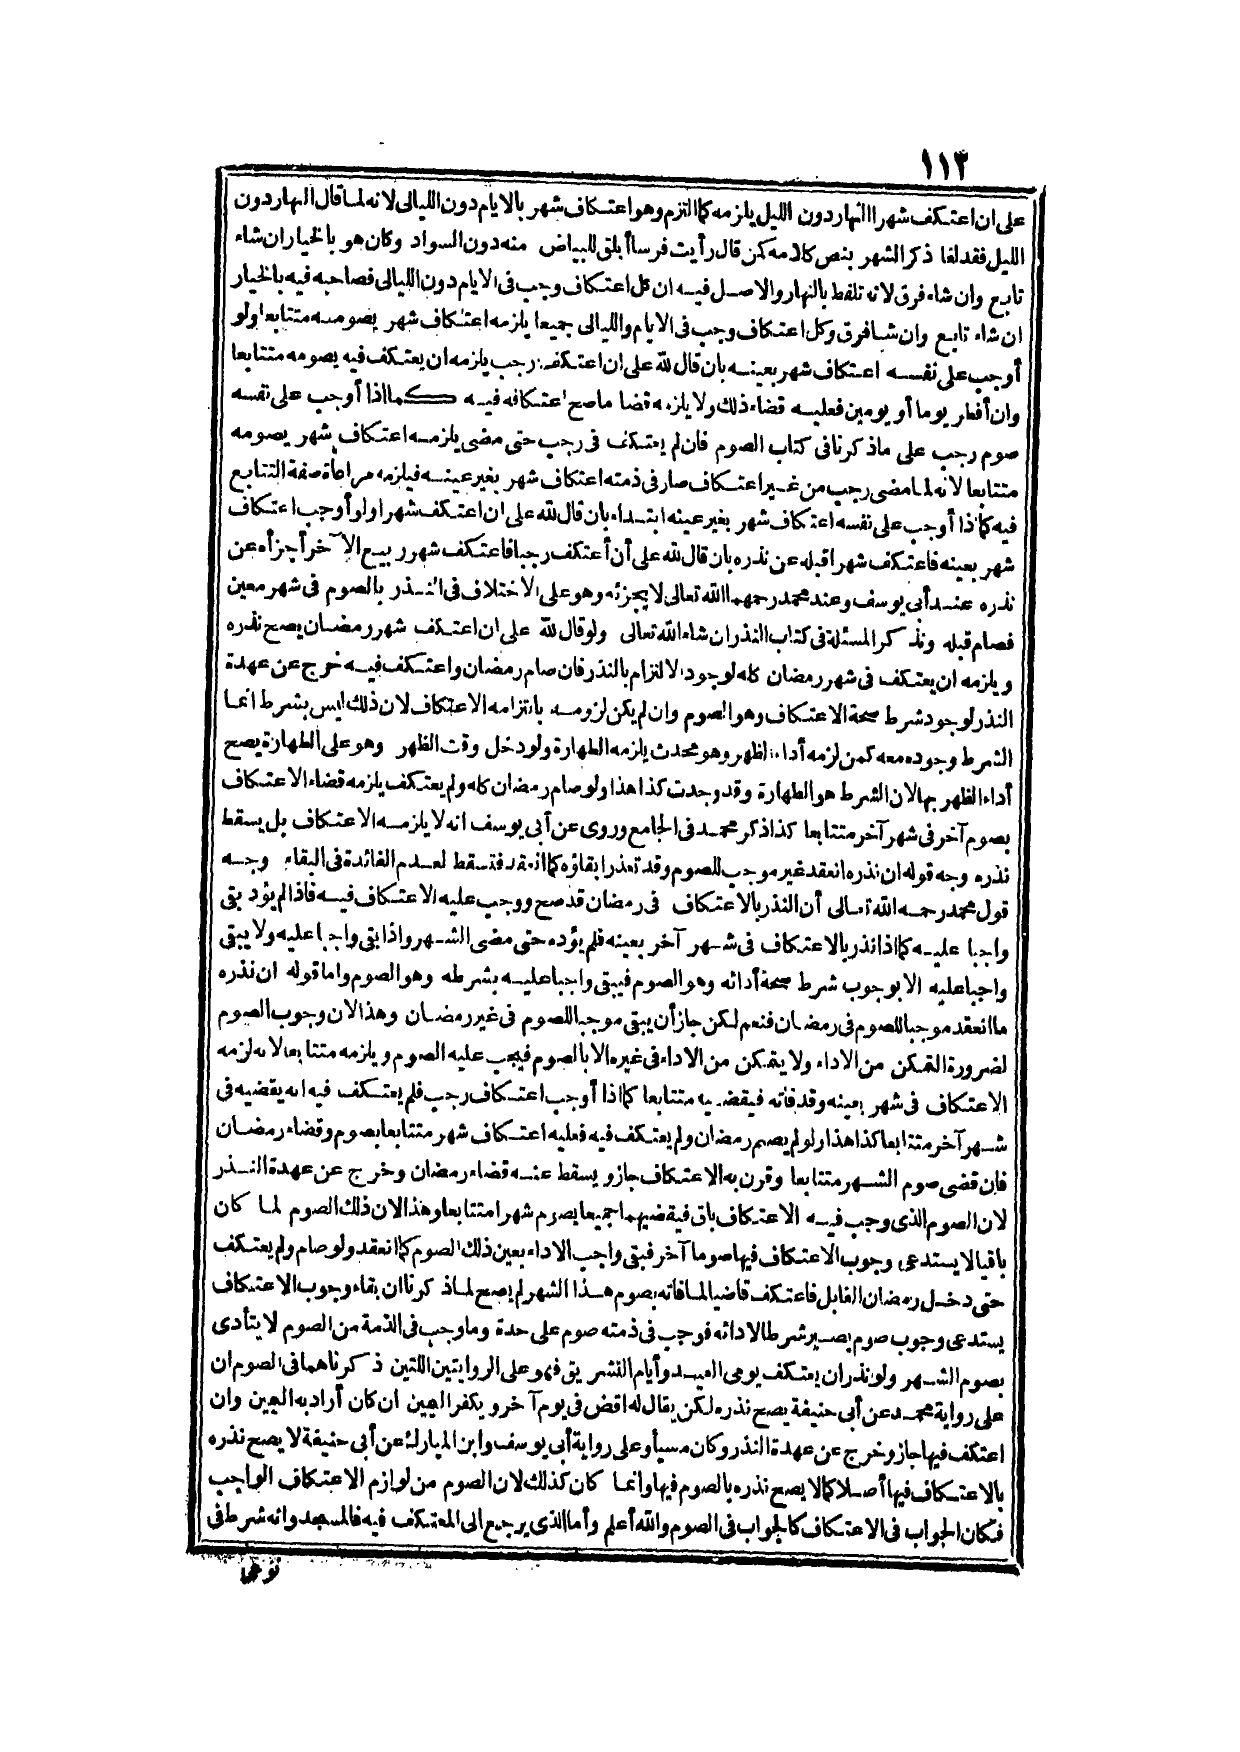 ١١٢
على ان اعتكف شهرا النهار دون الليل يلزمه كما التزم وهو اعتكاف شهر بالايام دون الليالى لانه لما قال النهار دون
الليل فقد لغا ذكر الشهر بنص كلامه كمن قال رأيت فرسا أبلق للبياض منه دون السواد وكان هو بالخيار ان شاء
تابع وان شاء فرق لانه تلفظ بالنهار والاصل فيه ان كل اعتكاف وجب فى الايام دون الليالى فصاحبه فيه بالخيار
ان شاء تابع وان شاء فرق وكل اعتكاف وجب فى الايام والليالى جميعا يلزمه اعتكاف شهر يصومه متتابعا ولو
أوجب على نفسه اعتكاف شهر بعينه بان قال لله على ان اعتكف رجب يلزمه ان يعتكف فيه يصومه متتابعا
وان أفطر يوما أو يومين فعليه قضاء ذلك ولا يلزمه قضا ما صح اعتكافه فيه كما اذا أوجب على نفسه
صوم رجب على ما ذكرنا فى كتاب الصوم فان لم يعتكف فى رجب حتى مضى يلزمه اعتكاف شهر يصومه
متتابعا لانه لما مضى رجب من غير اعتكاف صار فى ذمته اعتكاف شهر بغير عينه فيلزمه مراعاة صفة التتابع
فيه كما اذا أوجب على نفسه اعتكاف شهر بغير عينه ابتداء بان قال لله على ان اعتكف شهرا ولو أوجب اعتكاف
شهر بعينه فاعتكف شهرا قبله عن نذره بان قال لله على أن أعتكف رجبا فاعتكف شهر ربيع الآخر أجزأه عن
نذره عند أبى يوسف وعند محمد رحمهما الله تعالى لا يجزئه وهو على الاختلاف فى النذر بالصوم فى شهر معين
فصام قبله ونذكر المسئلة فى كتاب النذر ان شاء الله تعالى ولو قال لله على ان اعتكف شهر رمضان يصح نذره
ويلزمه ان يعتكف فى شهر رمضان كله لوجود الالتزام بالنذر فان صام رمضان واعتكف فيه خرج عن عهدة
النذر لوجود شرط صحة الاعتكاف وهو الصوم وان لم يكن لزومه بالتزامه الاعتكاف لان ذلك ليس بشرط انما
الشرط وجوده معه كمن لزمه أداء الظهر وهو محدث يلزمه الطهارة ولو دخل وقت الظهر وهو على الطهارة يصح
أداء الظهر بها لان الشرط هو الطهارة وقد وجدت كذا هذا ولو صام رمضان كله ولم يعتكف يلزمه قضاء الاعتكاف
بصوم آخر فى شهر آخر متتابعا كذا ذكر محمد فى الجامع وروى عن أبى يوسف انه لا يلزمه الاعتكاف بل يسقط
نذره وجه قوله ان نذره انعقد غير موجب للصوم وقد تعذر ابقاؤه كما انعقد فتسقط لعدم الفائدة فى البقاء وجه
قول محمد رحمه الله تعالى أن النذر بالاعتكاف فى رمضان قد صح ووجب عليه الاعتكاف فيه فاذا لم يؤد يبقى
واجبا عليه كما اذا نذر بالاعتكاف فى شهر آخر بعينه فلم يؤده حتى مضى الشهر واذا بقى واجبا عليه ولا يبقى
واجبا عليه الا بوجوب شرط صحة أدائه وهو الصوم فيبقى واجبا عليه بشرطه وهو الصوم واما قوله ان نذره
ما انعقد موجبا للصوم فى رمضان فنعم لكن جاز أن يبقى موجبا للصوم فى غير رمضان وهذا لان وجوب الصوم
لضرورة التمكن من الاداء ولا يتمكن من الاداء فى غيره الا بالصوم فيجب عليه الصوم ويلزمه متتابعا لانه لزمه
الاعتكاف فى شهر بعينه وقد فاته فيقضيه متتابعا كما اذا أوجب اعتكاف رجب فلم يعتكف فيه انه يقضيه فى
شهر آخر متتابعا كذا هذا ولو لم يصم رمضان ولم يعتكف فيه فعليه اعتكاف شهر متتابعا بصوم وقضاء رمضان
فان قضى صوم الشهر متتابعا وقرن به الاعتكاف جاز ويسقط عنه قضاء رمضان وخرج عن عهدة النذر
لان الصوم الذى وجب فيه الاعتكاف باق فيقضيهما جميعا بصوم شهرا متتابعا وهذا لان ذلك الصوم لما كان
باقيا لا يستدعى وجوب الاعتكاف فيها صوما آخر فبقى واجب الاداء بعين ذلك الصوم كما انعقد ولو صام ولم يعتكف
حتى دخل رمضان القابل فاعتكف قاضيا لما فاته بصوم هذا الشهر لم يصح لما ذكرنا ان بقاء وجوب الاعتكاف
يستدعى وجوب صوم يصير شرطا لادائه فوجب فى ذمته صوم على حدة وما وجب فى الذمة من الصوم لا يتأدى
بصوم الشهر ولو نذر ان يعتكف يومى العيد وأيام التشريق فهو على الروايتين اللتين ذكرناهما فى الصوم ان
على رواية محمد عن أبى حنيفة يصح نذره لكن يقال له اقض فى يوم آخر ويكفر اليمين ان كان أراد به اليمين وان
اعتكف فيها جاز وخرج عن عهدة النذر وكان مسيأ وعلى رواية أبى يوسف وابن المبارك عن أبى حنيفة لا يصح نذره
بالاعتكاف فيها أصلا كما لا يصح نذره بالصوم فيها وانما كان كذلك لان الصوم من لوازم الاعتكاف الواجب
فكان الجواب فى الاعتكاف كالجواب فى الصوم والله أعلم وأما الذى يرجع الى المعتكف فيه فالمسجد وانه شرط فى
نوعى